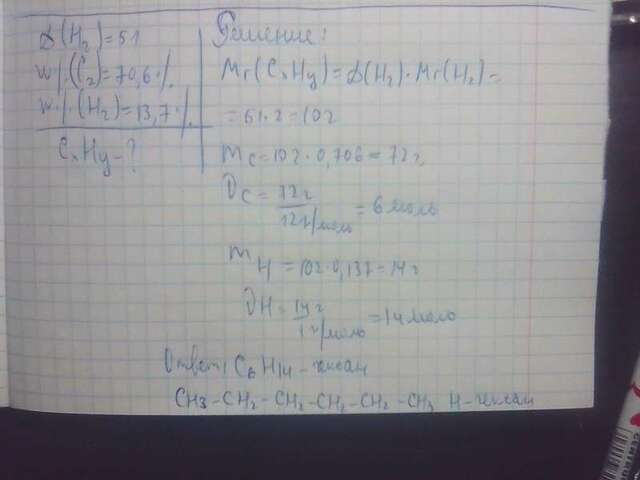 D(H₂)=51
W%(C₂)=70,6%
W%(H₂)=13,7%
CₓHy-?
Решение:
Mr(CₓHy)=D(H₂)·Mr(H₂)=
=51·2=102
mC=102·0,706=72г
νC=72г/12г/моль=6моль
mH=102·0,137=14г
νH=14г/1г/моль=14моль
Ответ: C₆H₁₄-гексан
CH3-CH2-CH2-CH2-CH2-CH3 H-гексан